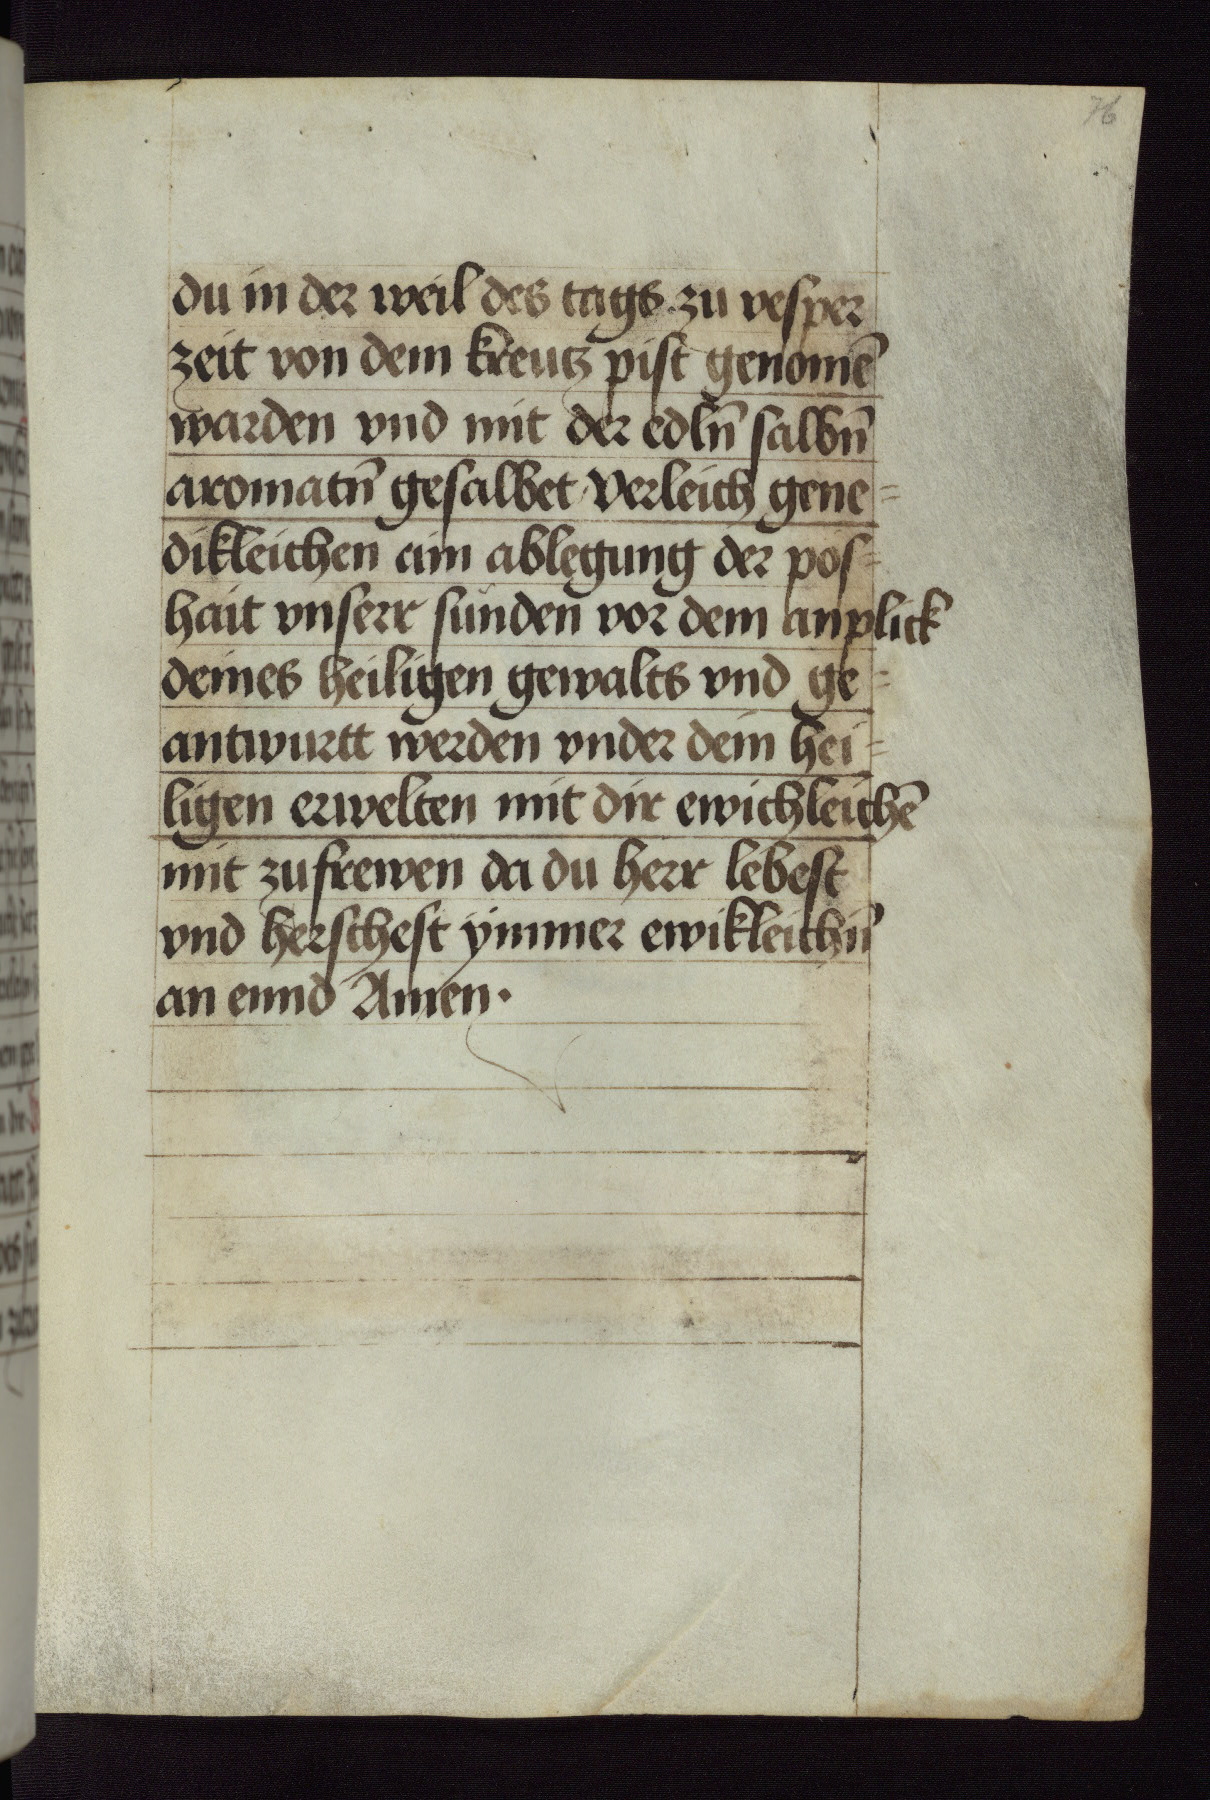 76
du in der weil des tags zu vesper
zeit von dem kreutz pist genomē
warden vnd mit der edln̄ salbn̄
aromatn̄ gesalbet Verleich gene=
dikleichen ain ablegung der pos=
hait vnserr sunden vor dem anplick
deines heiligen gewalts vnd ge=
antwurtt werden vnder dein hei=
ligen erwelten mit dir ewichleichē
mit zufrewen da du herr lebest
vnd herschest ymmer ewikleichn̄
an ennd Amen·